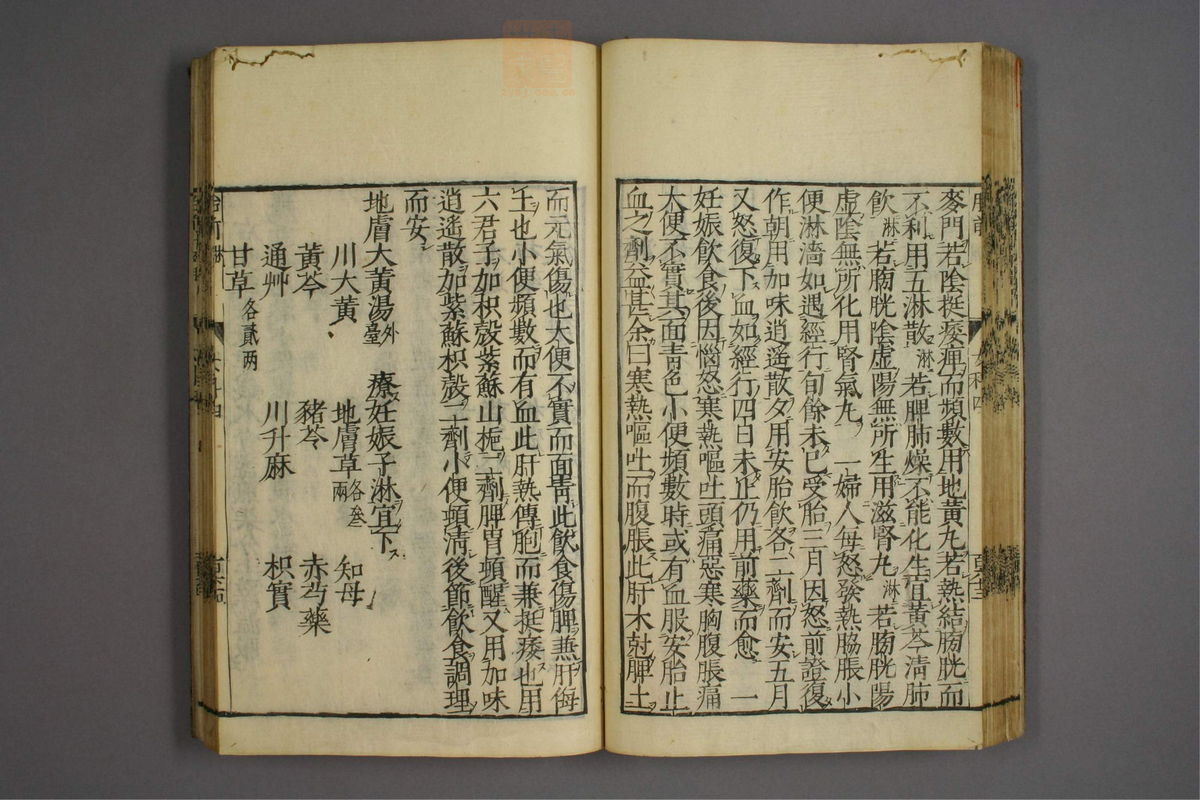 麥門若陰挺痿痺而頻數用地黃丸若熱結膀胱而
不利用五淋散淋若脾肺燥不能化生宜黃芩淸肺
飮淋若膀胱陰虛陽無所生用滋腎丸淋若膀胱陽
虛陰無所化用腎氣丸 一婦人每怒發熱脇脹小
便淋濇如遇經行旬餘未已受胎三月因怒前證復
作朝用加味逍遥散夕用安胎飮各二劑而安五月
又怒復下血如經行四日未止仍用前藥而愈 一
妊娠飮食後因惱怒寒熱嘔吐頭痛惡寒胸腹脹痛
大便不實其面靑色小便頻數時或有血服安胎止
血之劑益甚余曰寒熱嘔吐而腹脹此肝木尅脾土
而元氣傷也大便不實而面靑此飮食傷脾燕肝侮
土也小便頻數而有血此肝熱傳胞而兼挺痿也用
六君子加枳殼紫蘇山梔二劑脾胃頓醒又用加味
逍遥散加紫蘇枳殼二劑小便頓淸後節飮食調理
而安
地膚大黃湯外臺 療妊娠子淋宜下
川大黃 地膚草各叁兩 知母
黃芩 豬苓 赤芍藥
通艸 川升麻 枳實
甘草各貳两